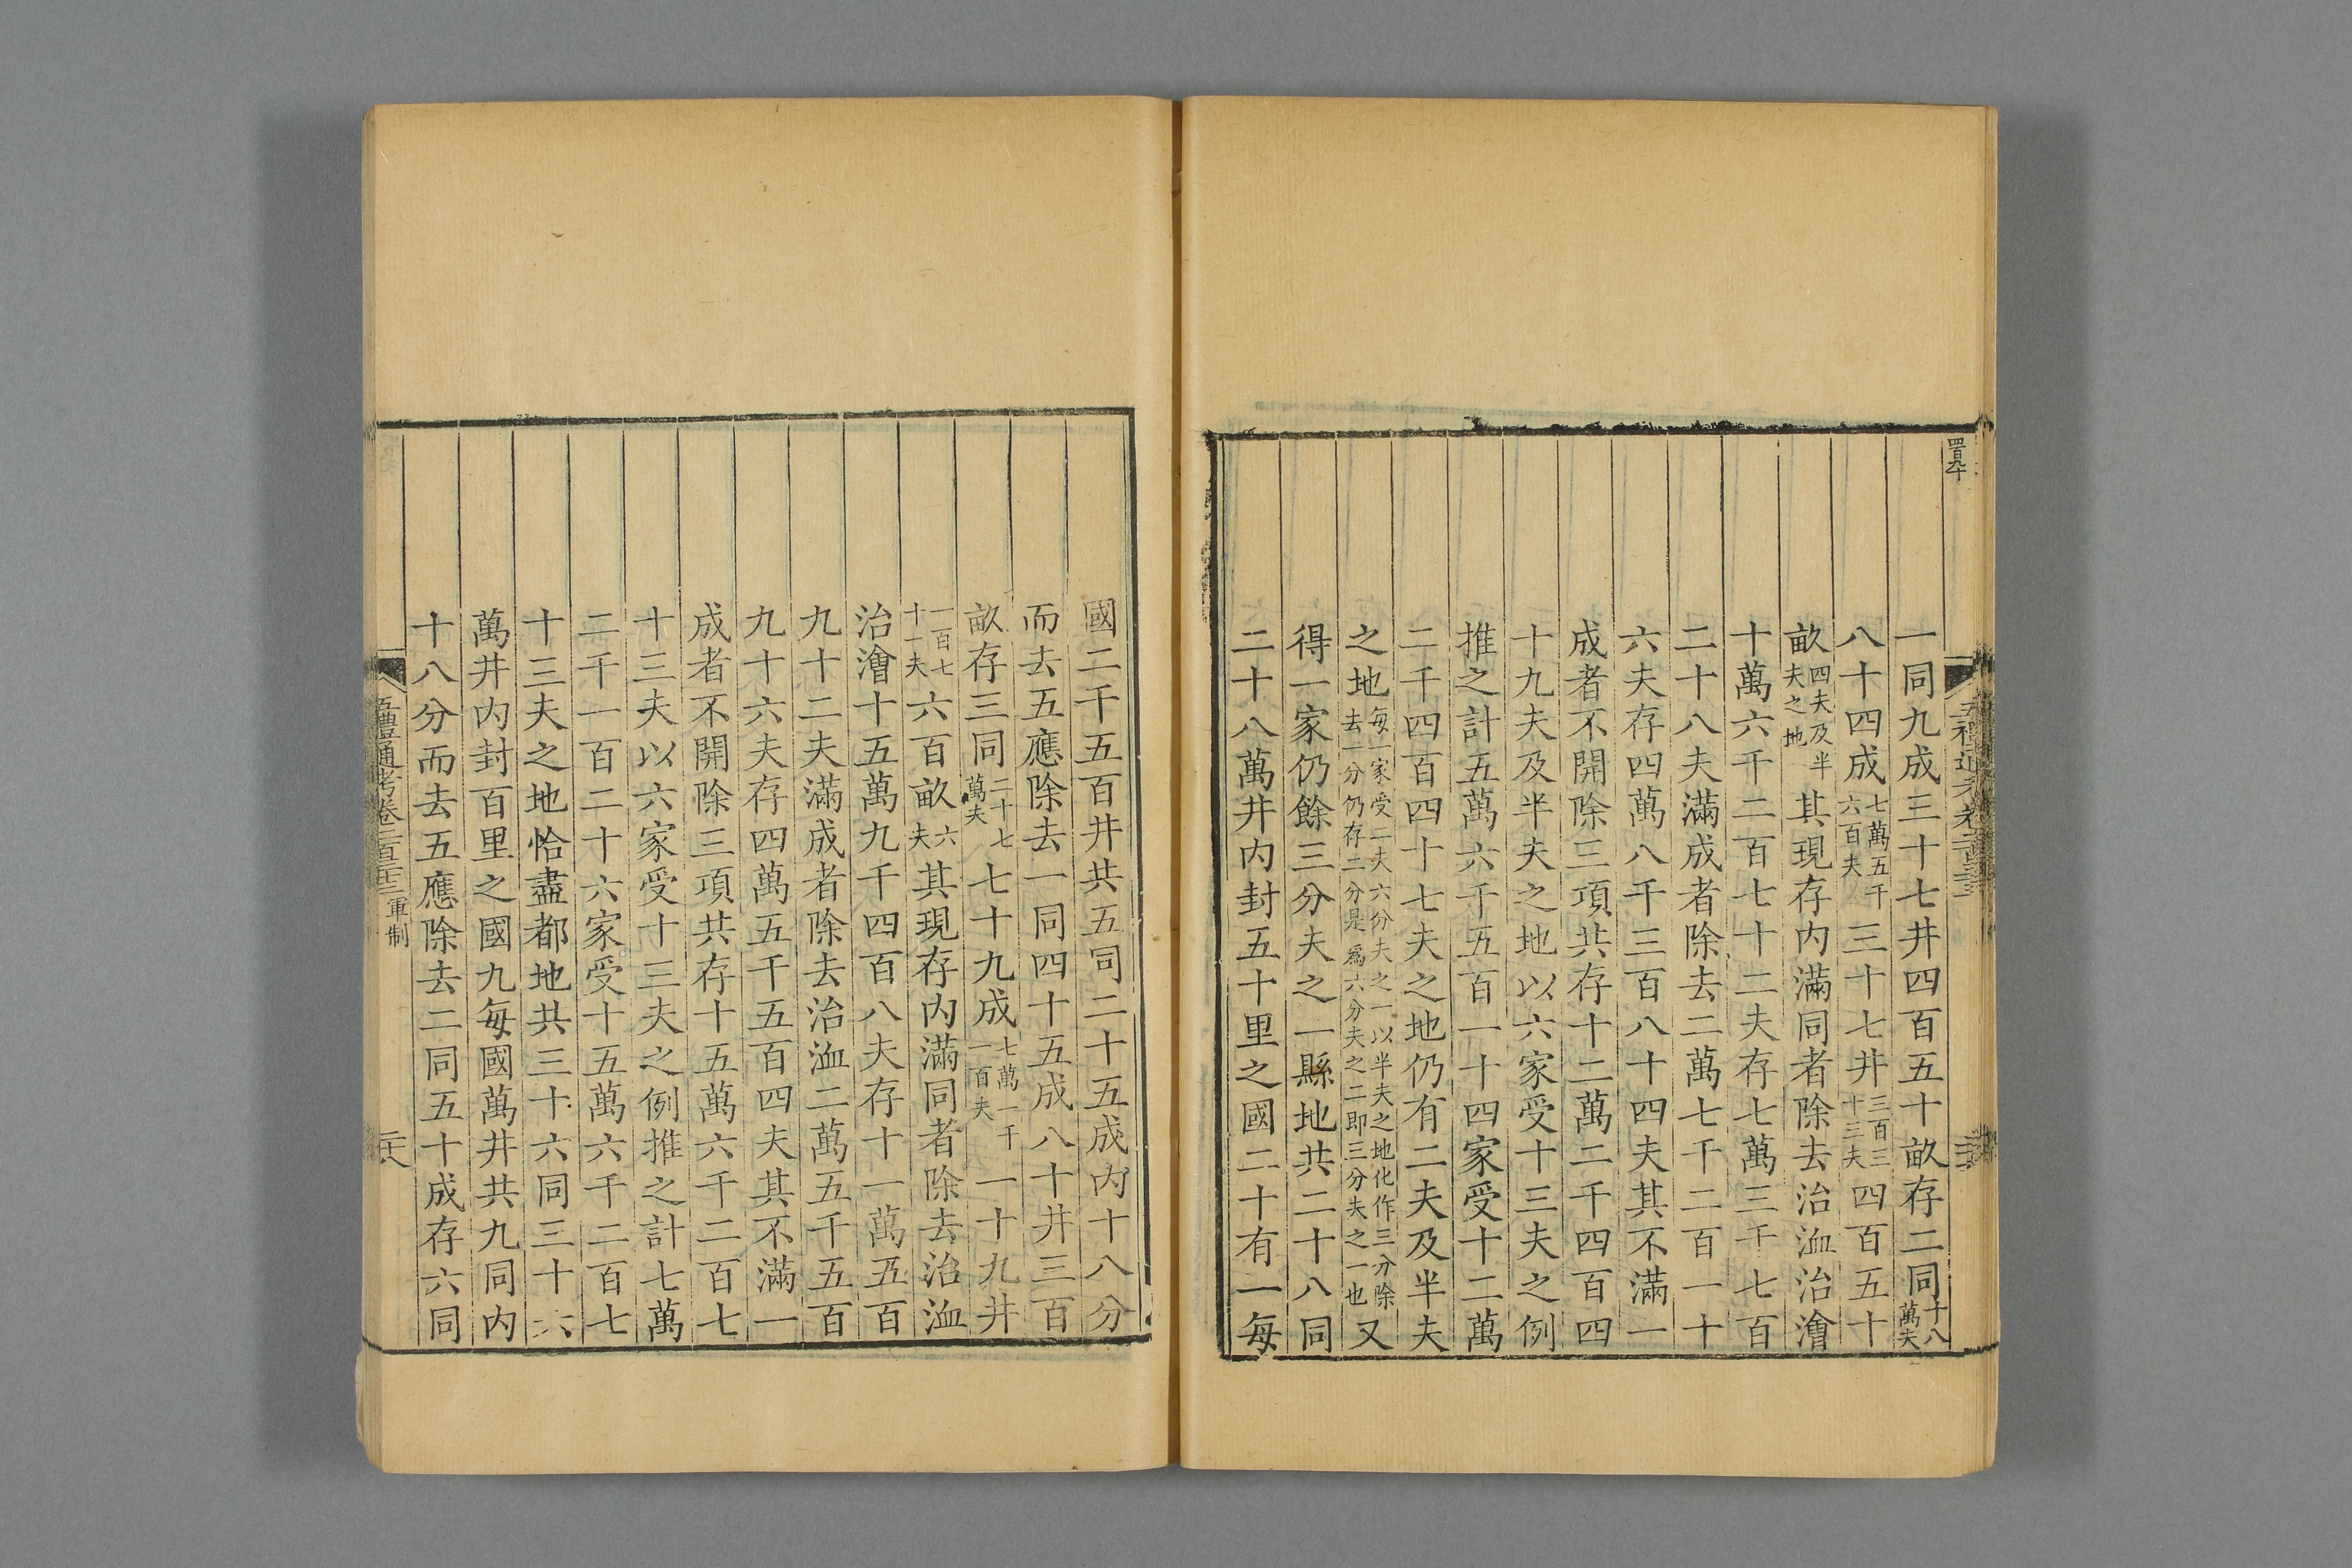 四百九十
一同九成三十七井四百五十畝存二同十八萬夫
八十四成七萬五千六百夫三十七井三百三十三夫四百五十
畝四夫及半夫之地其現存内滿同者除去治洫治澮
十萬六千二百七十二夫存七萬三千七百
二十八夫滿成者除去二萬七千二百一十
六夫存四萬八千三百八十四夫其不滿一
成者不開除三項共存十二萬二千四百四
十九夫及半夫之地以六家受十三夫之例
推之計五萬六千五百一十四家受十二萬
二千四百四十七夫之地仍有二夫及半夫
之地每一家受二夫六分夫之一以半夫之地化作三分除去一分仍存二分是爲六分夫之二即三分夫之一也又
得一家仍餘三分夫之一縣地共二十八同
二十八萬井内封五十里之國二十有一每
國二千五百井共五同二十五成内十八分
而去五應除去一同四十五成八十井三百
畝存三同二十七萬夫七十九成七萬一千一百夫一十九井
一百七十一夫六百畝六夫其現存内滿同者除去治洫
治澮十五萬九千四百八夫存十一萬五百
九十二夫滿成者除去治洫二萬五千五百
九十六夫存四萬五千五百四夫其不滿一
成者不開除三項共存十五萬六千二百七
十三夫以六家受十三夫之例推之計七萬
二千一百二十六家受十五萬六千二百七
十三夫之地恰盡都地共三十六同三十六
萬井内封百里之國九每國萬井共九同内
十八分而去五應除去二同五十成存六同
五禮通考卷二百三十三 軍制 二十八